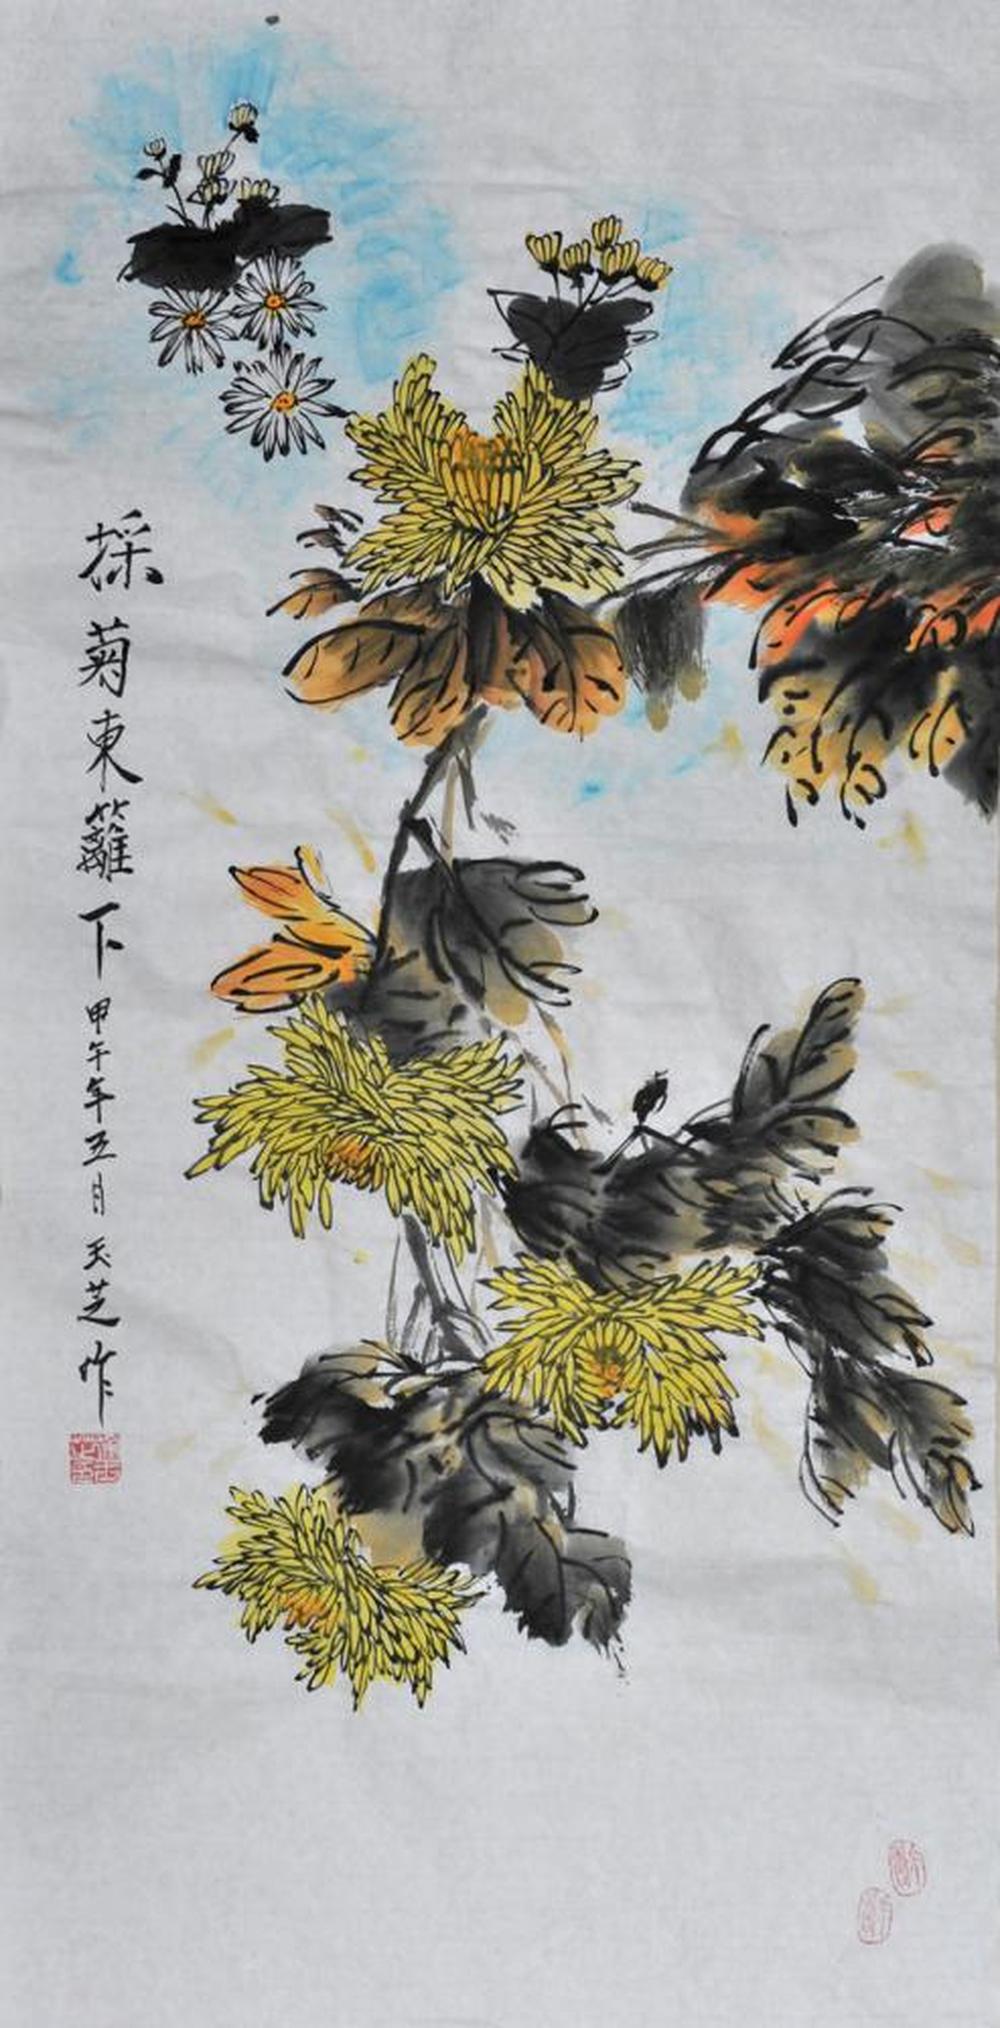 採菊東籬下 甲午年五月 玉芝作